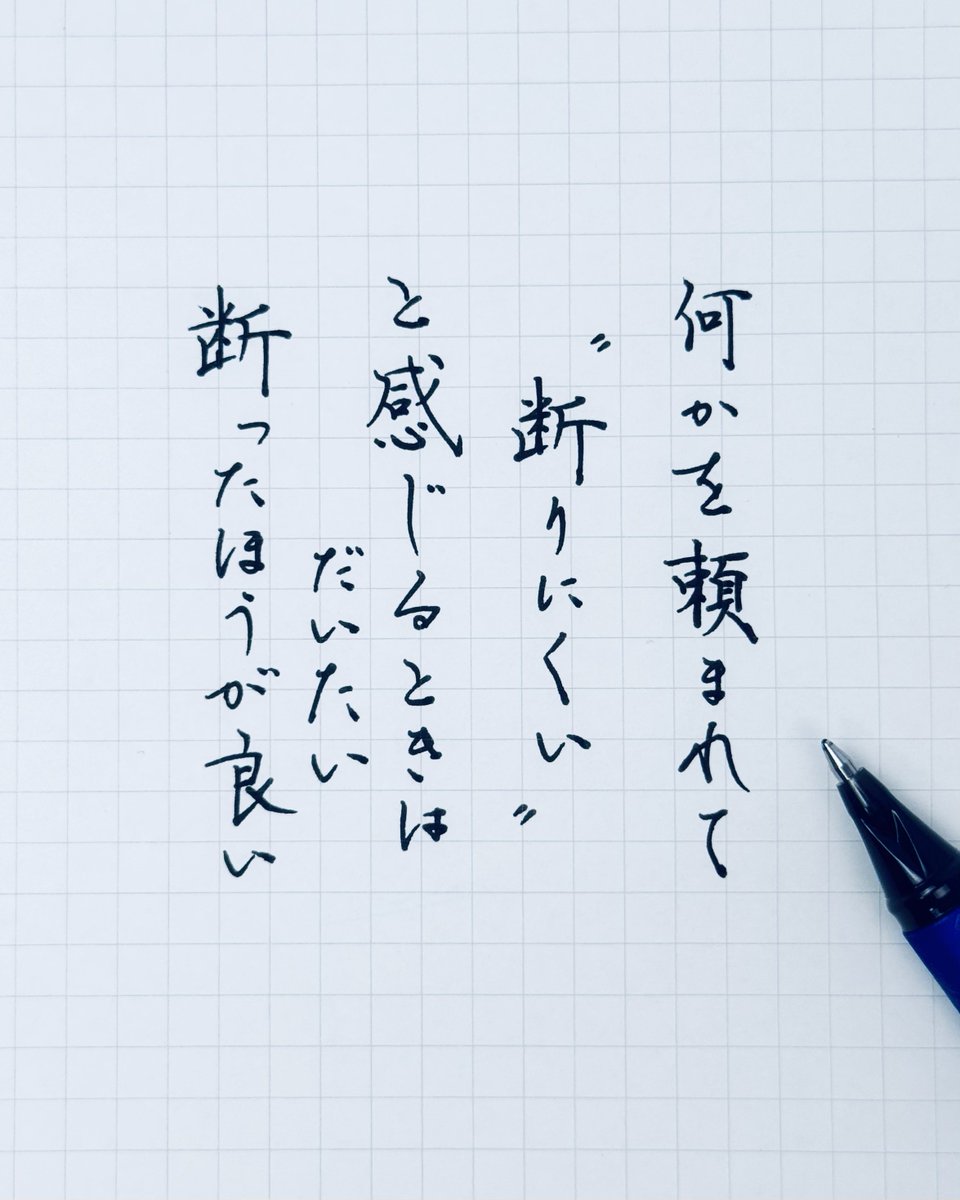 何かを頼まれて
〝断りにくい〟
と感じるときは
だいたい
断ったほうが良い